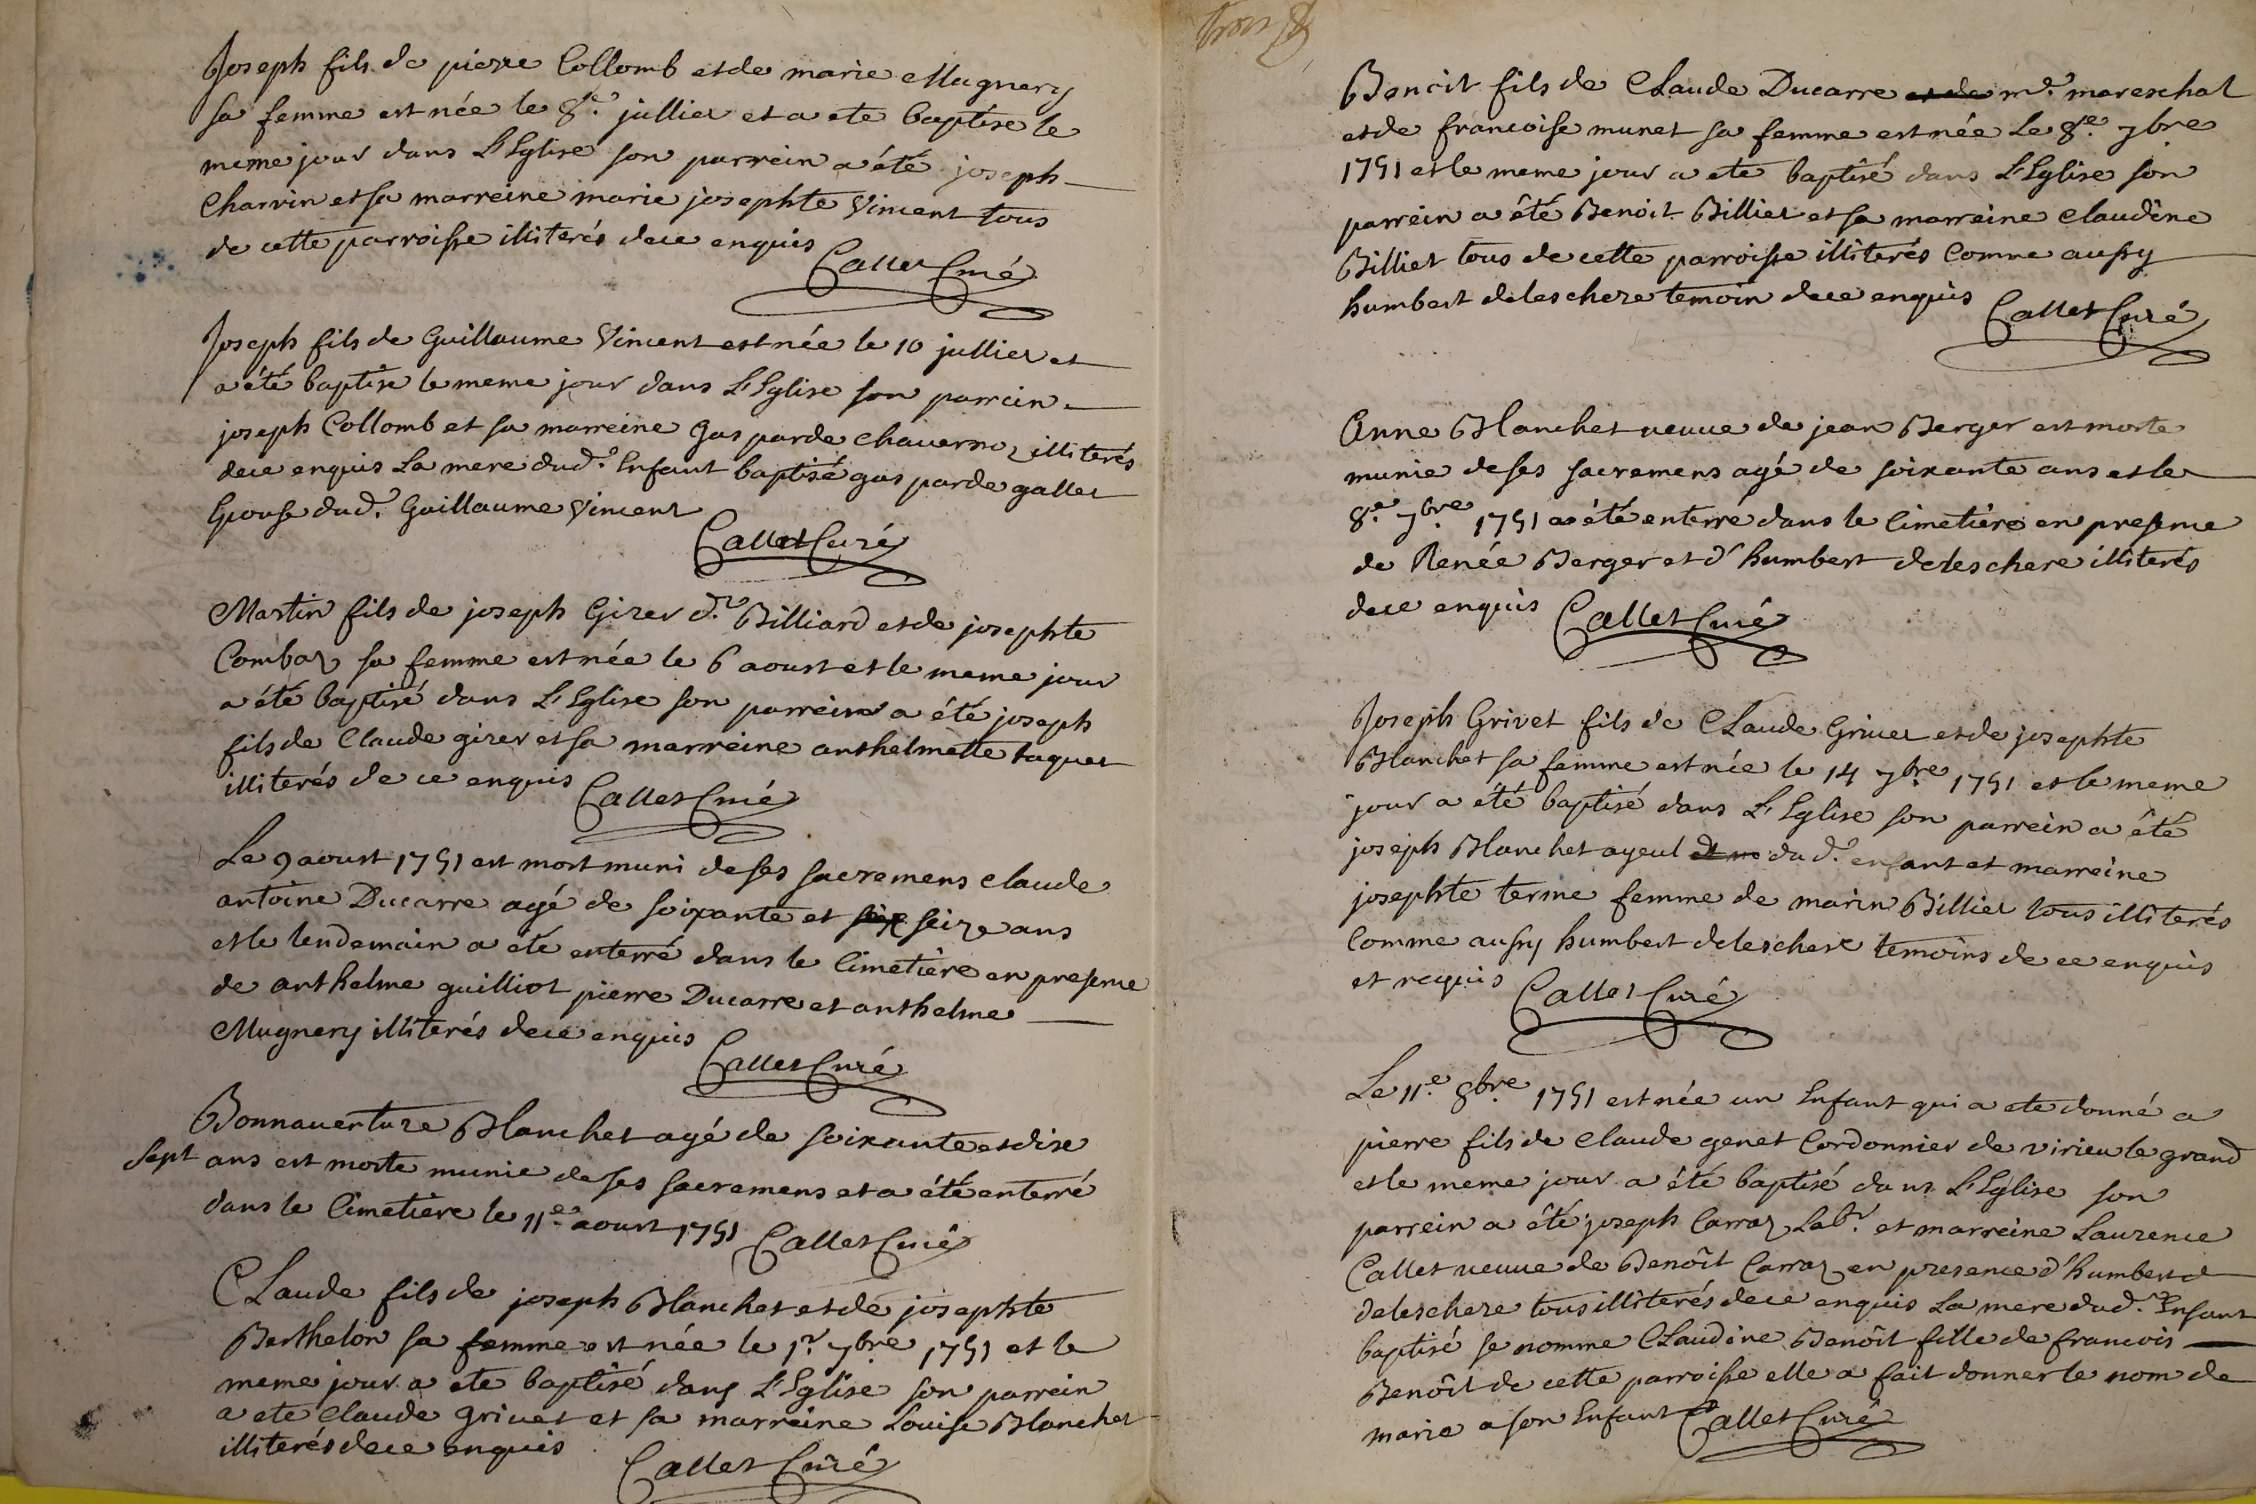 Joseph fils de pierre Collomb et de marie Mugnery
sa femme est née le 8e. jullier et a ete baptise le
meme jour dans L'Eglise son parrein a été joseph
Charvin et sa marreine marie josephte Vincent tous
de cette parroisse illiterés de ce enquis
Callet Curé
Joseph fils de Guillaume Vincent est née le 10 jullier et
a été baptise le meme jour dans L'Eglise son parrein
joseph Collomb et sa marreine Gasparde chavernoz illiterés
de ce enquis La mere dud. Enfant baptisé gasparde gallet
Epouse dud. Guillaume Vincent
Callet Curé
Martin fils de joseph Girer d. Billiard et de josephte
Combaz sa femme est née le 6 aoust et le meme jour
a été baptisé dans L'Eglise son parrein a été joseph
fils de Claude girer et sa marreine anthelmette taquet
illiterés de ce enquis
Callet Curé
Le 9 aoust 1751 est mort muni de ses sacremens claude
antoine Ducarre agé de soixante et six seize ans
et le lendemain a été enterré dans le Cimetière en presence
de anthelme guilliot pierre Ducarre et anthelme
Mugnery illiterés de ce enquis
Callet Curé
Bonnaventure Blanchet agé de soixante et dixe
sept ans est morte munie de ses sacremens et a été enterré
dans le Cimetiere le 11e. aoust 1751 Callet Curé
Claude fils de joseph Blanchet et de josephte
Berthelon sa femme est née le 1r. 7bre 1751 et le
meme jour a ete baptisé dans L'Eglise son parrein
a ete claude grivet et sa marreine Louise Blanchet
illiterés de ce enquis
Callet Curé
Benoit fils de Claude Ducarre et de md. mareschal
et de francoise munet sa femme est née Le 8e. 7bre
1751 et le meme jour a ete baptisé dans L'Eglise son
parrein a été Benoit Billiet et sa marreine claudine
Billiet tous de cette parroisse illiterés Comme aussy
humbert deleschere temoin de ce enquis
Callet Curé
Anne Blanchet veuve de jean Berger est morte
munie de ses sacremens agé de soixante ans et le
8e. 7bre 1751 a été enterré dans le Cimetière en presence
de Renée Berger et d'humbert deleschere illiterés
de ce enquis Callet Curé
Joseph Grivet fils de Claude Grivet et de josephte
Blanchet sa femme est née le 14 7bre 1751 et le meme
jour a été baptisé dans L'Eglise son parrein a été
joseph Blanchet ayeul dud. enfant et marreine
josephte terme femme de marin Billiet tous illiterés
Comme aussy humbert deleschere temoins de ce enquis
et requis Callet Curé
Le 11e. 8bre 1751 est née un Enfant qui a ete donné a
pierre fils de claude genet Cordonnier de virieu le grand
et le meme jour a été baptisé dans L'Eglise son
parrein a été joseph Carraz Labr. et marreine Laurence
Callet veuve de Benoît Carraz en presence d'humbert
deleschere tous illiterés de ce enquis La mere dud. Enfant
baptisé se nomme Claudine Benoît fille de francois
Benoît de cette parroisse elle a fait donner le nom de
marie a son Enfant Callet Curé